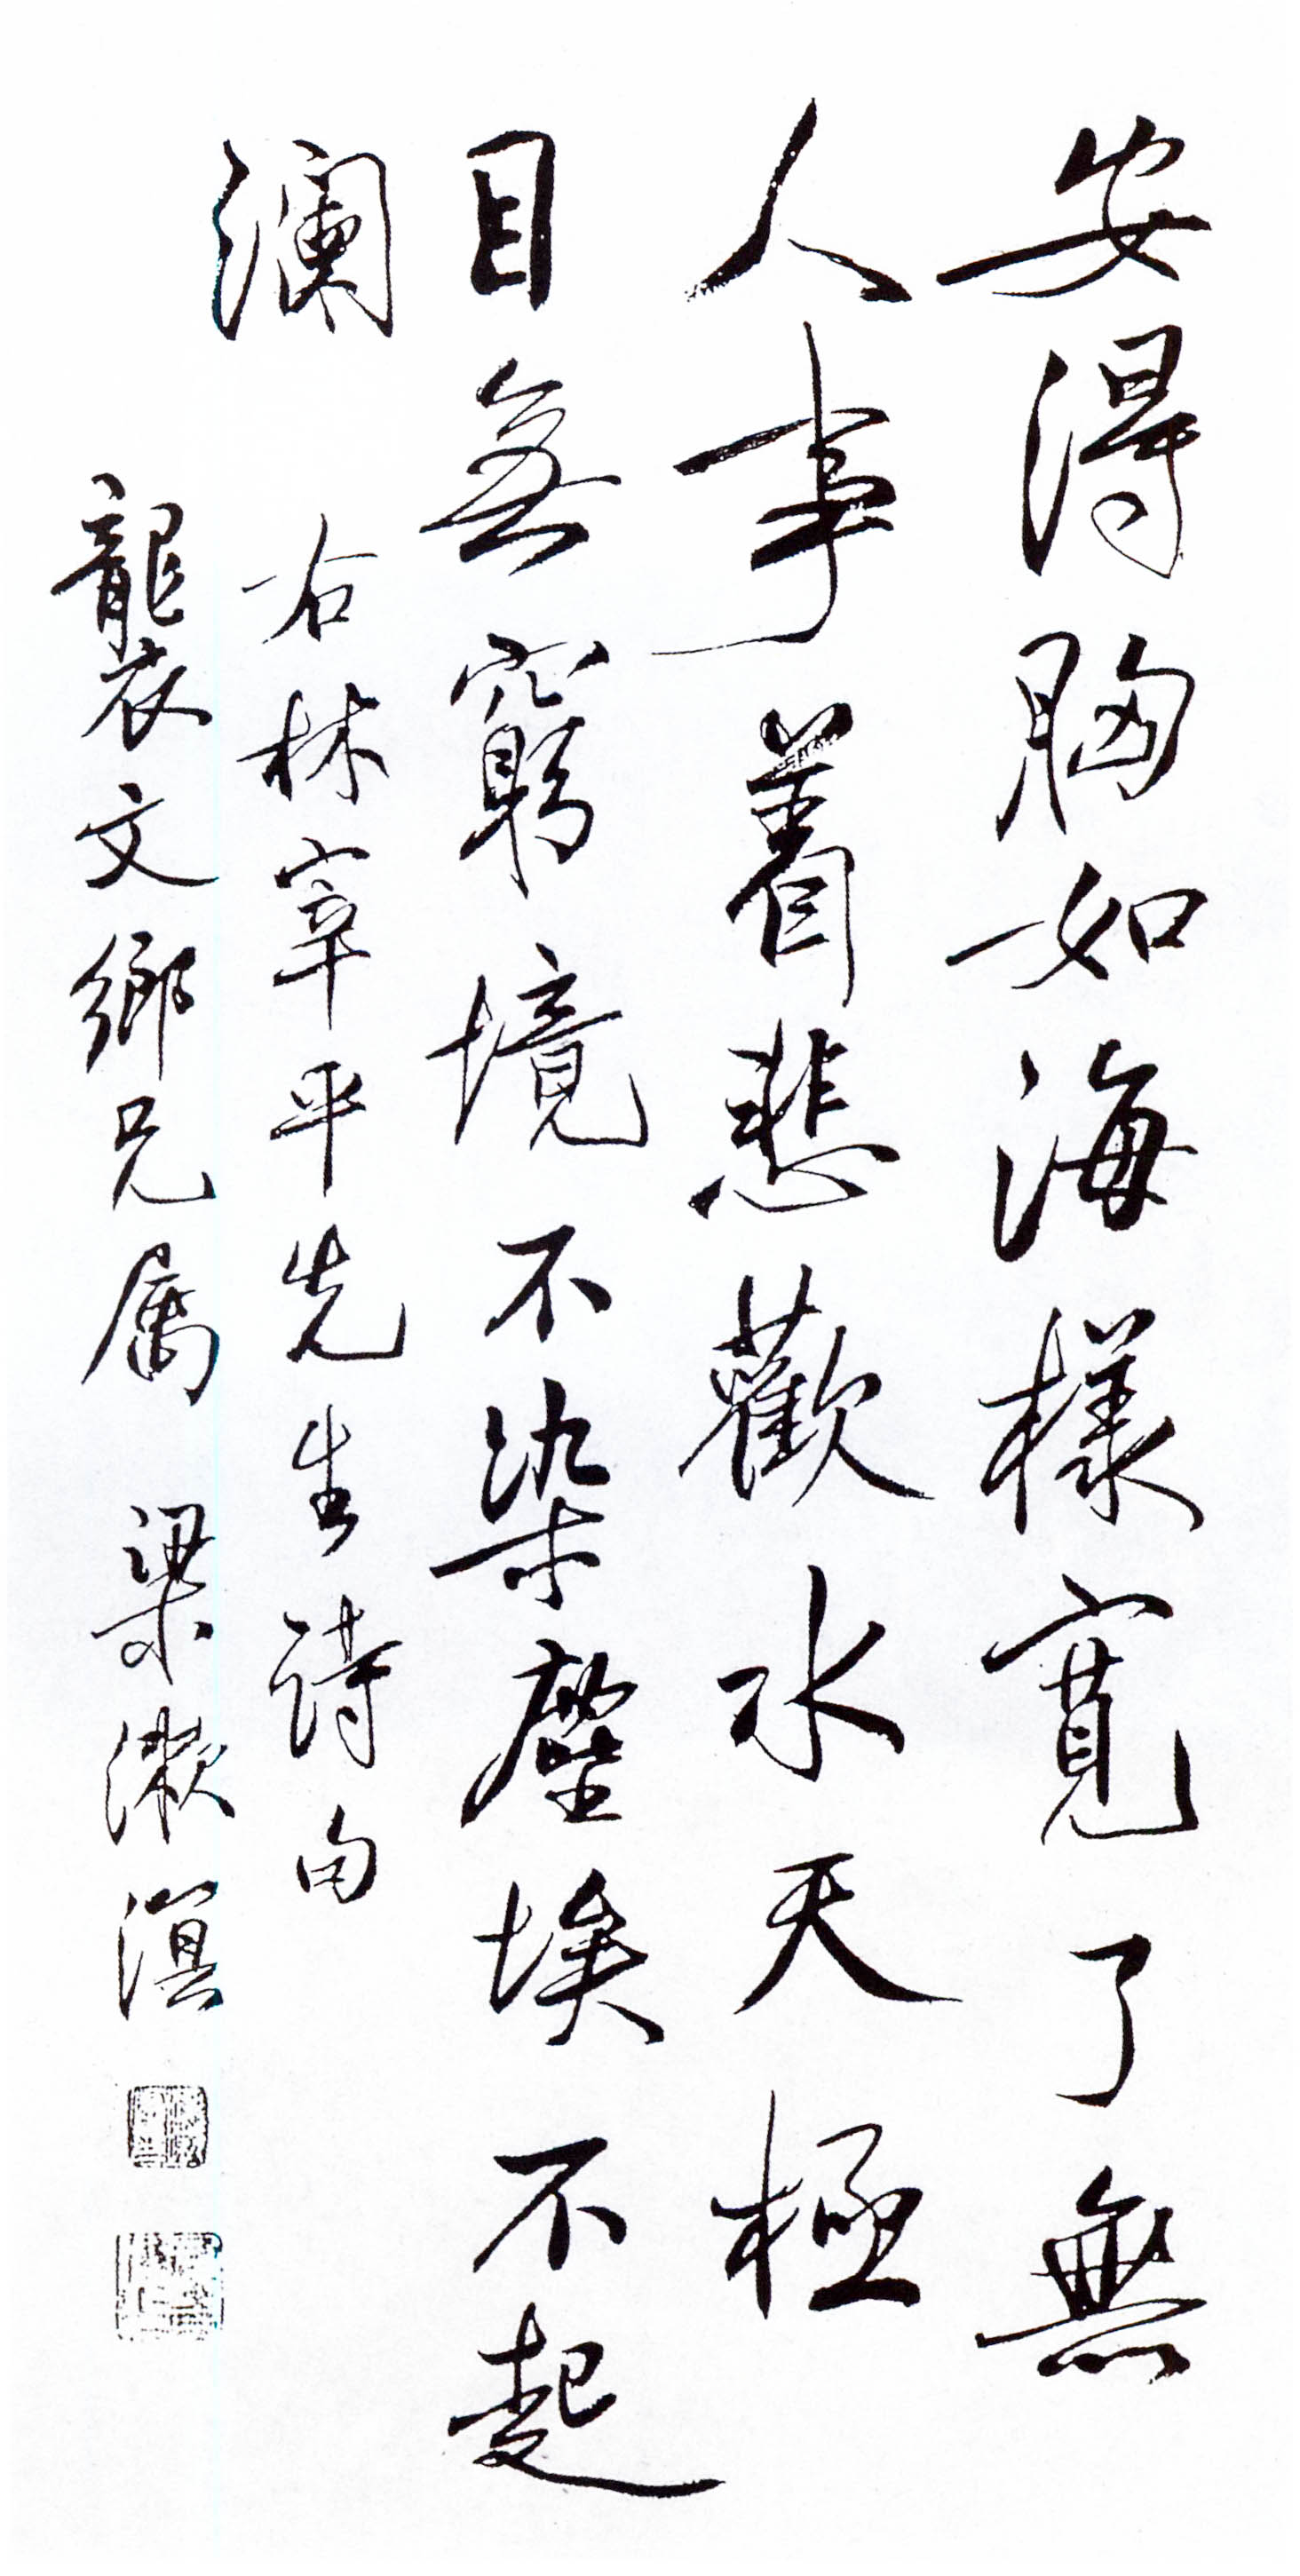 安得胸如海樣寬了無
人事着悲歡水天極
目無窮境不染塵埃不起
瀾
右林宰平先生詩句
襲文鄉兄属 梁漱溟